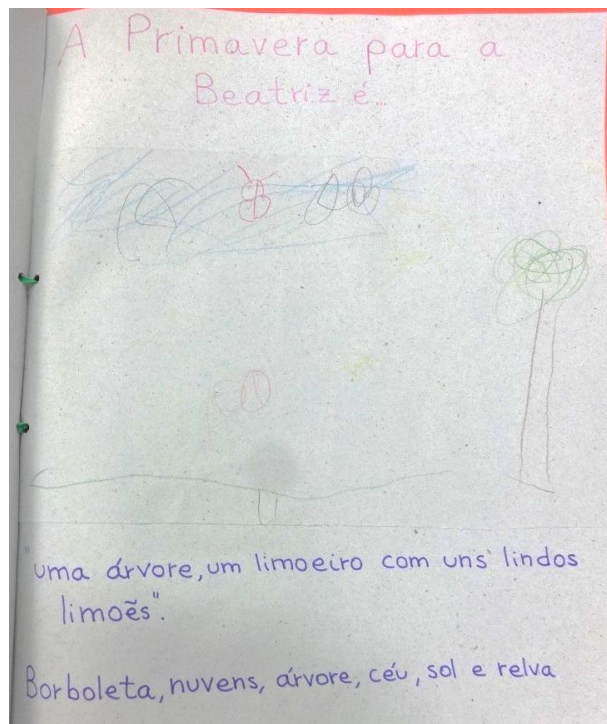 A Primavera para a
Beatriz é...
"uma árvore, um limoeiro com uns lindos
limoẽs".
Borboleta, nuvens, árvore, céu, sol e relva